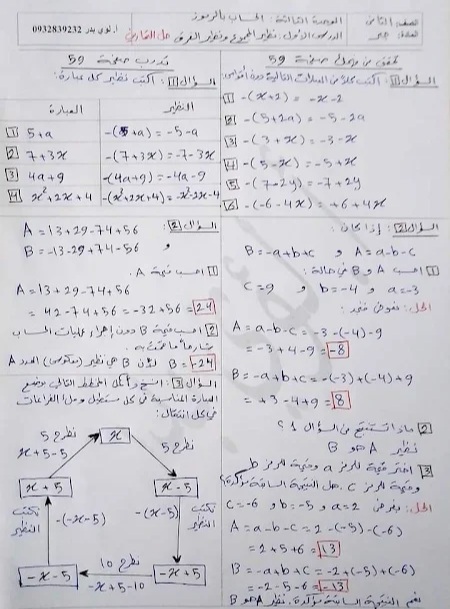 الصف: الثامن
المادة: جبر
الوحدة الثالثة: الحساب بالرموز
الدرس الأول: نظير المجموع ونظير الفرق حل التمارين
0932839232
تحقق من فهمك صفحة 59
السؤال 1: اكتب كلاً من العبارات التالية دون أقواس:
1 -(x+2) = -x-2
2 -(5+2a) = -5-2a
3 -(3+x) = -3-x
4 -(5-x) = -5+x
5 -(7-2y) = -7+2y
6 -(-6-4x) = +6+4x
السؤال 2: إذا كان:
A=a-b-c و B=-a+b+c
1 احسب A و B في حالة:
a=-3 و b=-4 و c=9
الحل: نعوض فنجد:
A=a-b-c=-3-(-4)-9
=-3+4-9=-8
B=-a+b+c=-(-3)+(-4)+9
=+3-4+9=8
2 ماذا تستنتج من السؤال 1؟
نظير A هو B
3 اختر قيمة للرمز a وقيمة للرمز b
وقيمة للرمز c. هل النتيجة السابقة مؤكدة؟
الحل: بفرض a=2 و b=-5 و c=-6
A=a-b-c=2-(-5)-(-6)
=2+5+6=13
B=-a+b+c=-2+(-5)+(-6)
=-2-5-6=-13
نعم النتيجة السابقة مؤكدة. نظير A هو B
تدرب صفحة 59
السؤال 1: اكتب نظير كل عبارة:
العبارة النظير
1 5+a -(5+a)=-5-a
2 7+3x -(7+3x)=-7-3x
3 4a+9 -(4a+9)=-4a-9
4 x²+2x+4 -(x²+2x+4)=-x²-2x-4
السؤال 2: A=13+29-74+56
و B=-13-29+74-56
1 احسب قيمة A:
A=13+29-74+56
=42-74+56=-32+56=24
2 احسب قيمة B دون إجراء عمليات الحساب
شارحاً ما قمت به.
B=-24 لأن B هي نظير (معكوس) العدد A
السؤال 3: انسخ وأكمل المخطط التالي وضع
العبارة المناسبة في كل مستطيل وملأ الفراغات
في كل انتقال:
نطرح 5
x+5-5
x
نطرح 5
x+5
x-5
نكتب
النظير
-(-x-5)
-(x-5)
نكتب
النظير
نطرح 10
-x-5
-x+5
-x+5-10